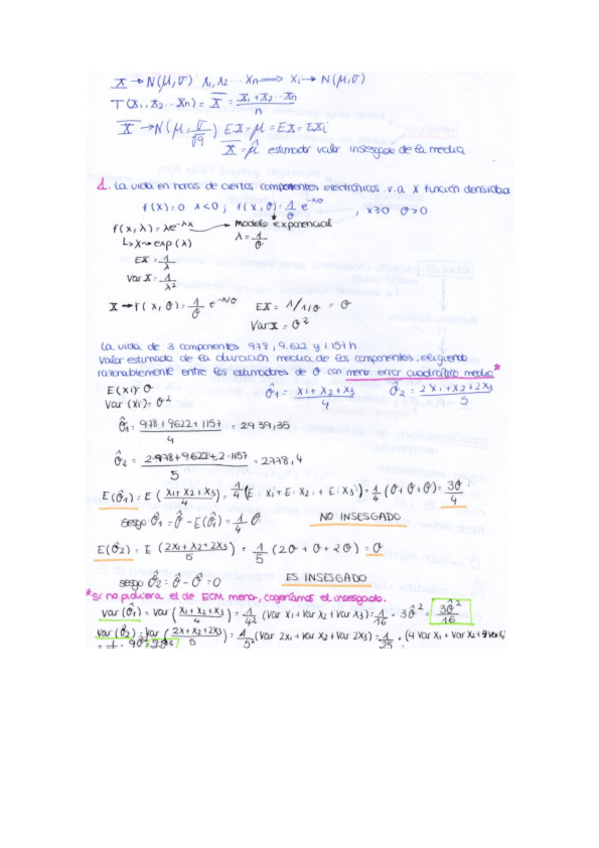 X → N(μ,σ) X₁,X₂ ... Xn ⟹ Xi → N(μ,σ)
T(X₁,X₂...Xn) = X̄ = X₁+X₂...Xn / n
X̄ → N(μ, σ/√9) EX̄ = μ = EX = EXi
X̄ = μ̂ estimador valor insesgado de la media
1. La vida en horas de ciertos componentes electrónicos v.a X función densidad
f(X)=0 x<0; f(x,θ)=1/θ e^-x/θ, x≥0 θ>0
f(x,λ)=λe^-λx → modelo exponencial
↳X→exp(λ) λ=1/θ
EX=1/λ
Var X=1/λ²
X→f(x,θ)=1/θ e^-x/θ EX=1/1/θ=θ
Var X=θ²
La vida de 3 componentes 978, 9.622 y 1.157h.
Valor estimado de la duración media de los componentes, eligiendo
razonablemente entre los estimadores de θ con menor error cuadrático medio*
E(Xi)=θ θ̂₁=x₁+x₂+x₃/4 θ̂₂=2x₁+x₂+2x₃/5
Var(Xi)=θ²
θ̂₁=978+9622+1157/4=2939,35
θ̂₂=2·978+9622+2·1157/5=2778,4
E(θ̂₁)=E(x₁+x₂+x₃/4)=1/4(Ex₁+Ex₂+Ex₃)=1/4(θ+θ+θ)=3θ/4
sesgo θ̂₁=θ̂-E(θ̂₁)=1/4 θ. NO INSESGADO
E(θ̂₂)=E(2x₁+x₂+2x₃/5)=1/5(2θ+θ+2θ)=θ
sesgo θ̂₂=θ̂-θ̂=0 ES INSESGADO
*Si no pidiera el de ECM menor, cogeríamos el insesgado.
var(θ̂₁)=var(x₁+x₂+x₃/4)=1/4²(var x₁+var x₂+var x₃)=1/16·3θ̂²=3θ̂²/16
var(θ̂₂)=var(2x+x₂+2x₃/5)=1/5²(var 2x₁+var x₂+var 2x₃)=1/25·(4 var x₁+var x₂+4 var x